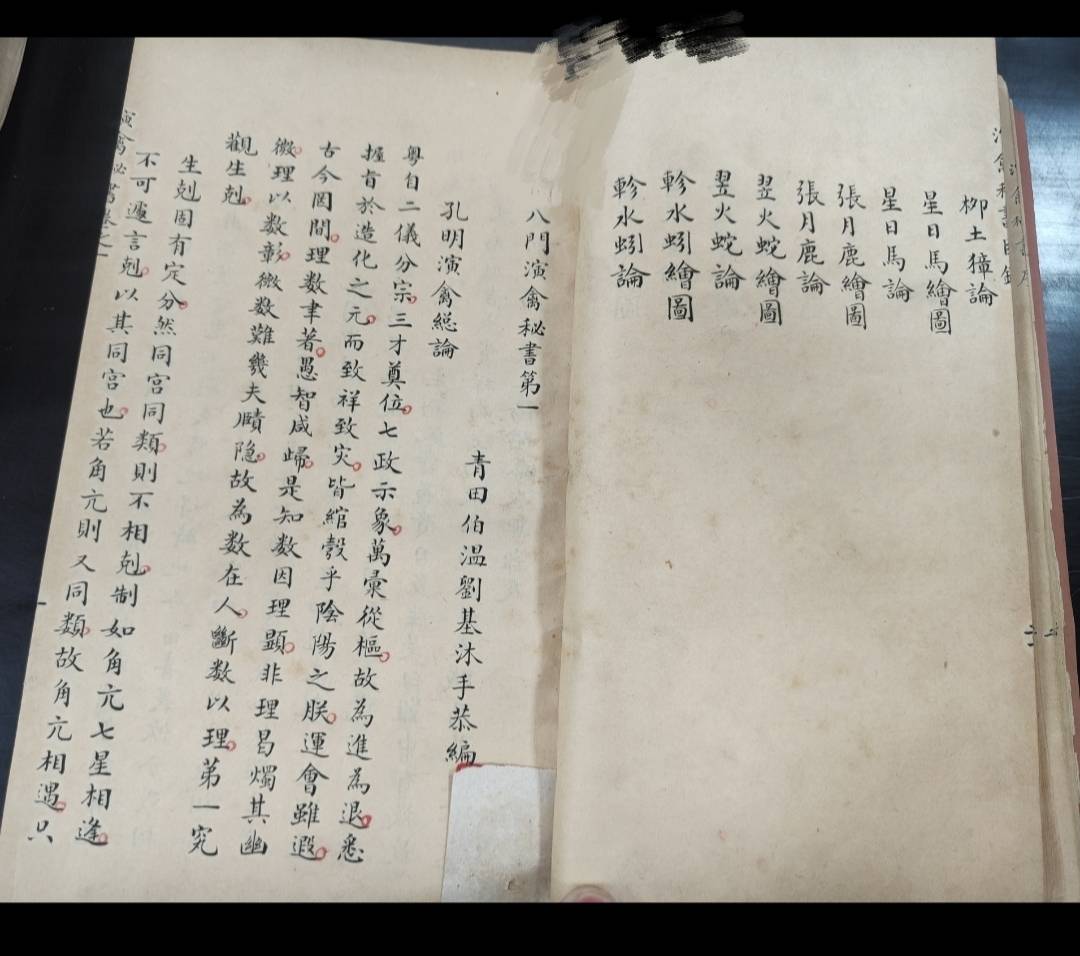 柳土獐論
星日馬繪圖
星日馬論
張月鹿繪圖
張月鹿論
翌火蛇繪圖
翌火蛇論
軫水蚓繪圖
軫水蚓論
八門演禽秘書第一
青田伯溫劉基沐手恭編
孔明演禽総論
粤自二儀分宗三才奠位七政示象萬彙從樞故為進為退悉
握首於造化之元而致祥致灾皆綰轂乎陰陽之朕運會雖遐
古今罔間理数聿著愚智咸歸是知数因理顕非理曷燭其幽
微理以数彰微数難幾夫賾隐故為数在人斷数以理第一究
觀生剋
生剋固有定分然同宮同類則不相剋制如角亢七星相逢
不可遽言剋以其同宮也若角亢則又同類故角亢相遇只
演禽秘書卷之一